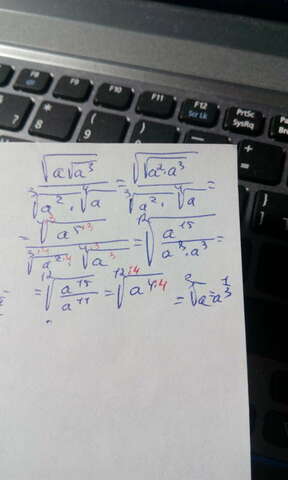 F8 F9 F10 F11 F12 PrtSc
Scr Lk SysRq
√(a√a³) / (³√a² · ⁴√a) = √√(a²·a³) / (³√a² · ⁴√a) =
= ⁴·³√a⁵·³ / (³·⁴√a²·⁴ ⁴·³√a³) = ¹²√(a¹⁵ / (a⁸·a³)) =
= ¹²√(a¹⁵ / a¹¹) = ¹²:⁴√a⁴:⁴ = ³√a = a^(1/3)